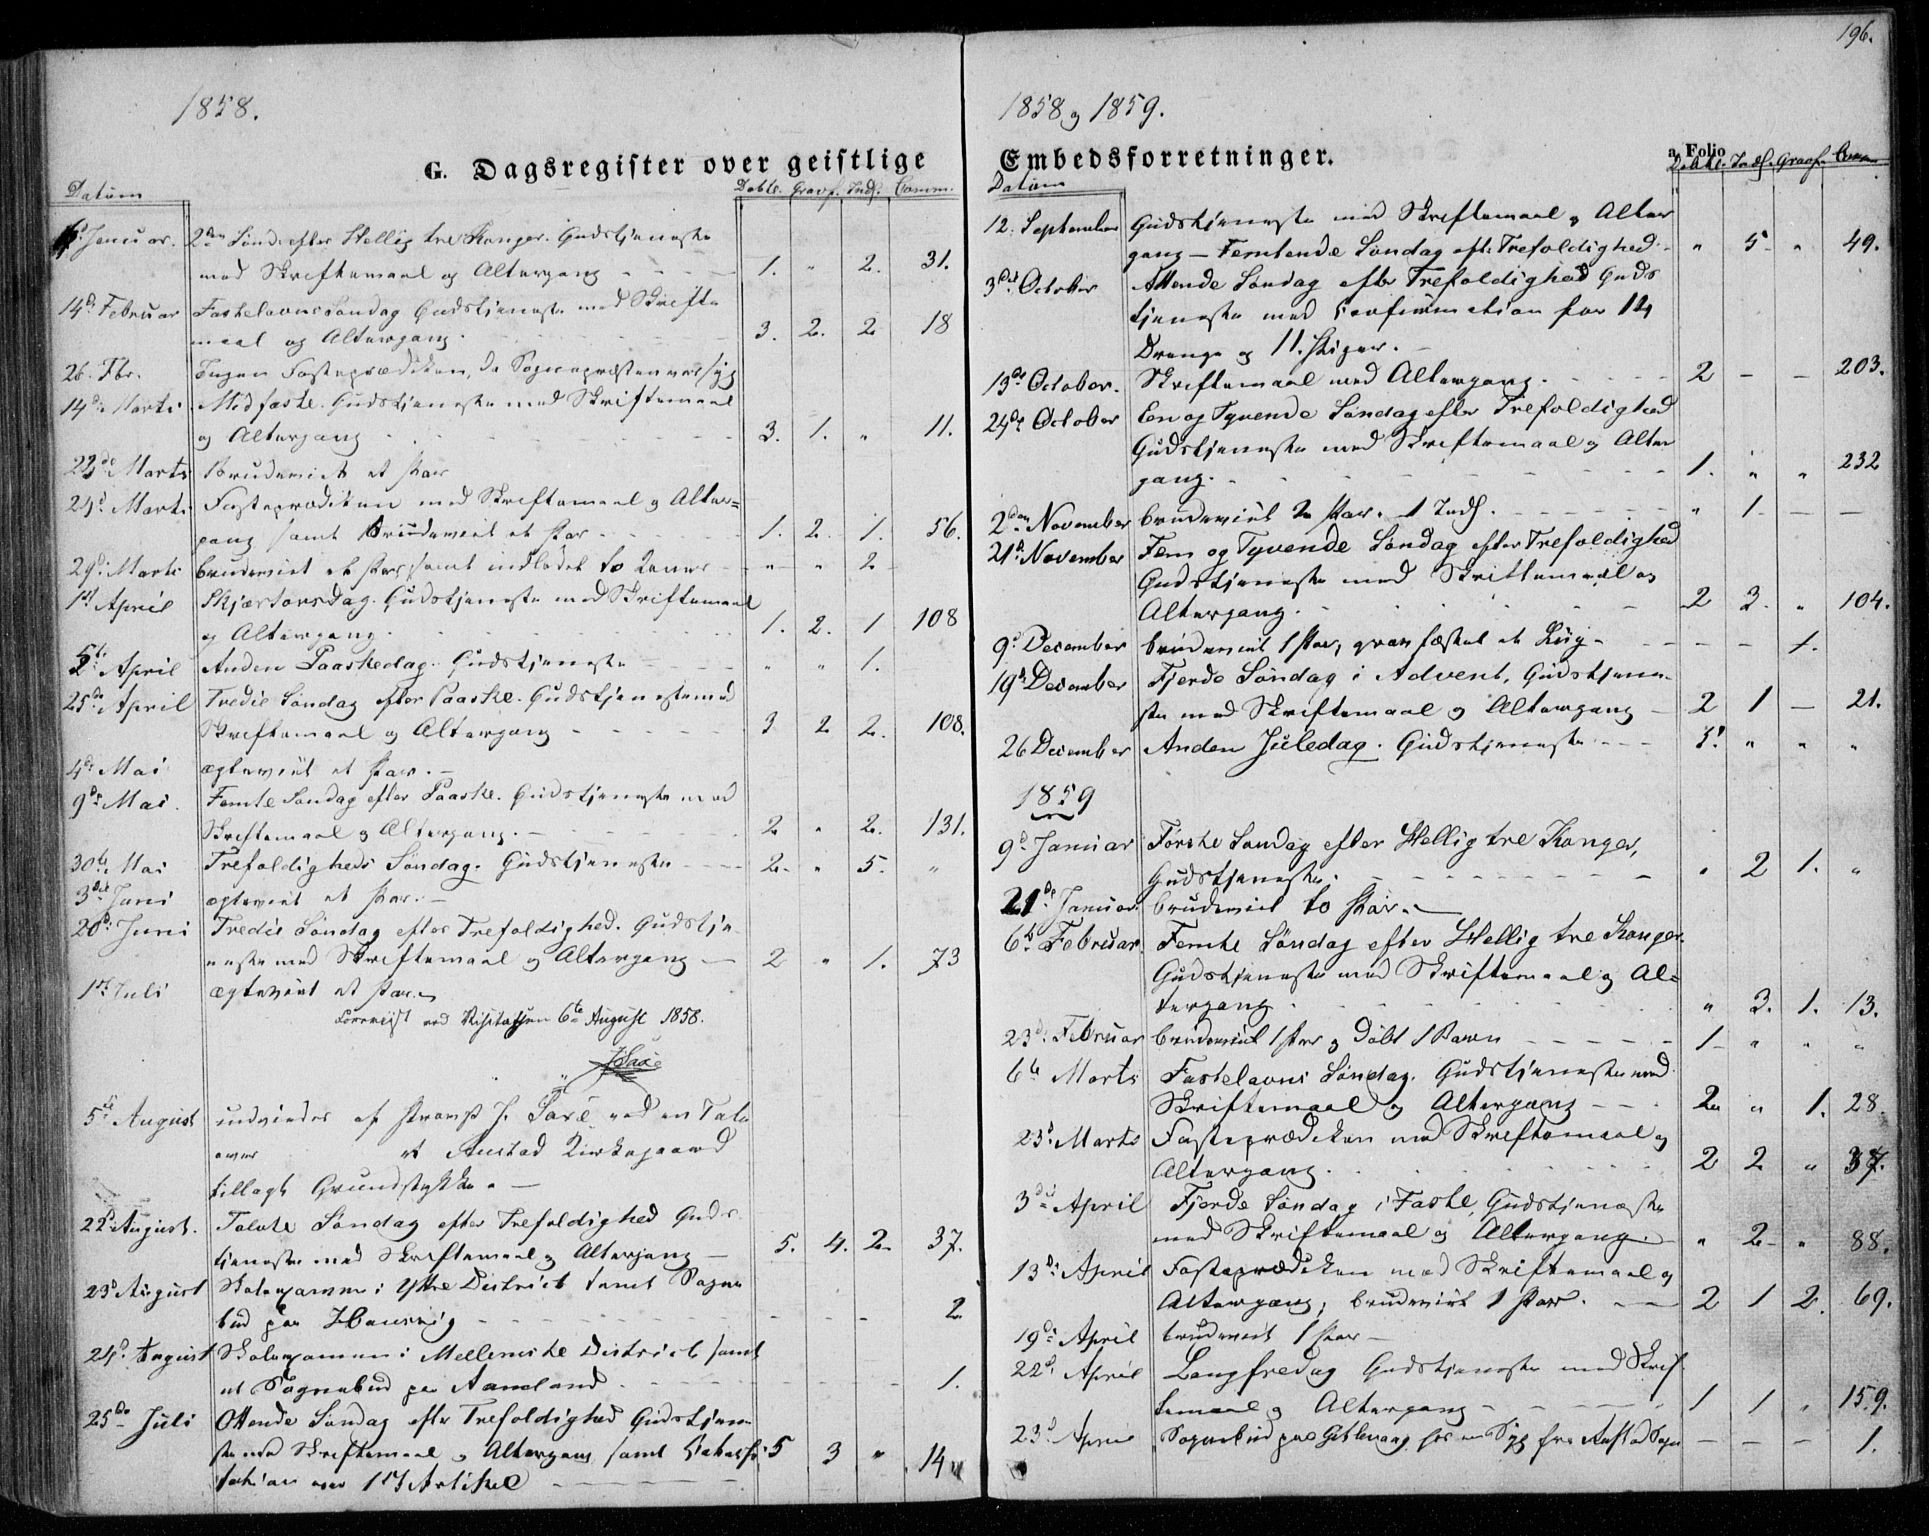 196.
1858.
G. Dagsregister over geistlige
Datum
Døbte. Gravf. Indl. Comm.
Januar. 2den Sønd. efter Hellig tre Konger. Gudstjeneste
med Skriftemaal og Altergang 1. " 2. 31.
14de Februar Fastelavns Søndag Gudstjeneste med Skrifte
maal og Altergang. 3. 2. 2 18
26. Fbr. Ingen Fasteprædiken, da Sognepræsten var syg
14de Marts Midfaste. Gudstjeneste med Skriftemaal
og Altergang 3. 1. " 11.
Marts Brudeviet et Par
24de Marts Fasteprædiken med Skriftemaal og Alter=
gang samt Brudeviet et Par 1. 2. 1. 56.
29de Marts brudeviet et Par samt indledet to Koner " " 2
1ste April Skjærtorsdag. Gudstjeneste med Skriftemaal
og Altergang. 1. 2. 1 108
5te April Anden Paaskedag. Gudstjeneste " " 1.
25de April Tredie Søndag efter Paaske. Gudstjeneste med
Skriftemaal og Altergang 3 2 2. 108.
4de Mai ægteviet et Par.
9de Mai. Femte Søndag efter Paaske. Gudstjeneste med
Skriftemaal og Altergang. 2 " 2. 131.
30te Mai Trefoldigheds Søndag. Gudstjeneste 2 " 5. "
3die Juni ægteviet et Par.
20de Juni Tredie Søndag efter Trefoldighed. Gudstje
neste med Skriftemaal og Altergang 2 " 1. 73
1ste Juli ægteviet et Par.
ved Visitatsen 6te August 1858.
5te August indviedes af Provst J. Saxe ved en Tale
over et Austad Kirkegaard
tillagt Grundstykke.
22de August. Tolvte Søndag efter Trefoldighed Guds
tjeneste med Skriftemaal og Altergang 5. 4. 2 37.
23de August Skoleexamen i Ytre District samt Sogne
bud paa 2
24de August Skoleexamen i Mellemste District samt
et Sognebud paa Aamland 1.
25de Juli Ottende Søndag efter Trefoldighed Gudstjene
ste med Skriftemaal og Altergang samt Katechi 5 3 " 14
sation over 1ste Artikel
1858 og 1859.
Embedsforretninger.
a. Folio
Datum
Døbte. Indl. Gravf. Comm.
12. September Gudstjeneste med Skriftemaal og Alter
gang - Femtende Søndag efter Trefoldighed " 5 " 49.
3die October Attende Søndag efter Trefoldighed Guds
tjeneste med Confirmation for 14
Drenge og 11. Piger.
13de October. Skriftemaal med Altergang. 2 - - 203.
24de October Een og Tyvende Søndag efter Trefoldighed
Gudstjeneste med Skriftemaal og Alter
gang. 1. " " 232
2den November brudeviet 2 Par. 1 Indl. " 1
21de November Fem og Tyvende Søndag efter Trefoldighed
Gudstjeneste med Skriftemaal og
Altergang. 2 3. " 104.
9de December brudeviet 1 Par, gravfæstet et Liig 1.
19de December Fjerde Søndag i Advent. Gudstjene
ste med Skriftemaal og Altergang 2 1 - 21.
26 December Anden Juledag. Gudstjeneste " " "
1859
9de Januar Første Søndag efter Hellig tre Konger,
Gudstjeneste. " 2 1. "
21de Januar brudeviet to Par.
6te Februar Femte Søndag efter Hellig tre Konger.
Gudstjeneste med Skriftemaal og Al=
tergang " 3. 1. 13.
23de Februar brudeviet 1 Par og Døbt 1 Barn 1 " " "
6te Marts Fastelavns Søndag. Gudstjeneste med
Skriftemaal og Altergang 2 " 1. 28.
23de Marts Fasteprædiken med Skriftemaal og
Altergang. 2 2 "
3die April Fjerde Søndag i Faste, Gudstjeneste
med Skriftemaal og Altergang. " 2 " 88.
13de April Fasteprædiken med Skriftemaal og
Altergang, brudeviet 1 Par. 2 1 2. 69.
19de April brudeviet 1 Par
22de April Langfredag Gudstjeneste med Skrif
temaal og Altergang 1 1 " 159.
23de April Sognebud paa 1.